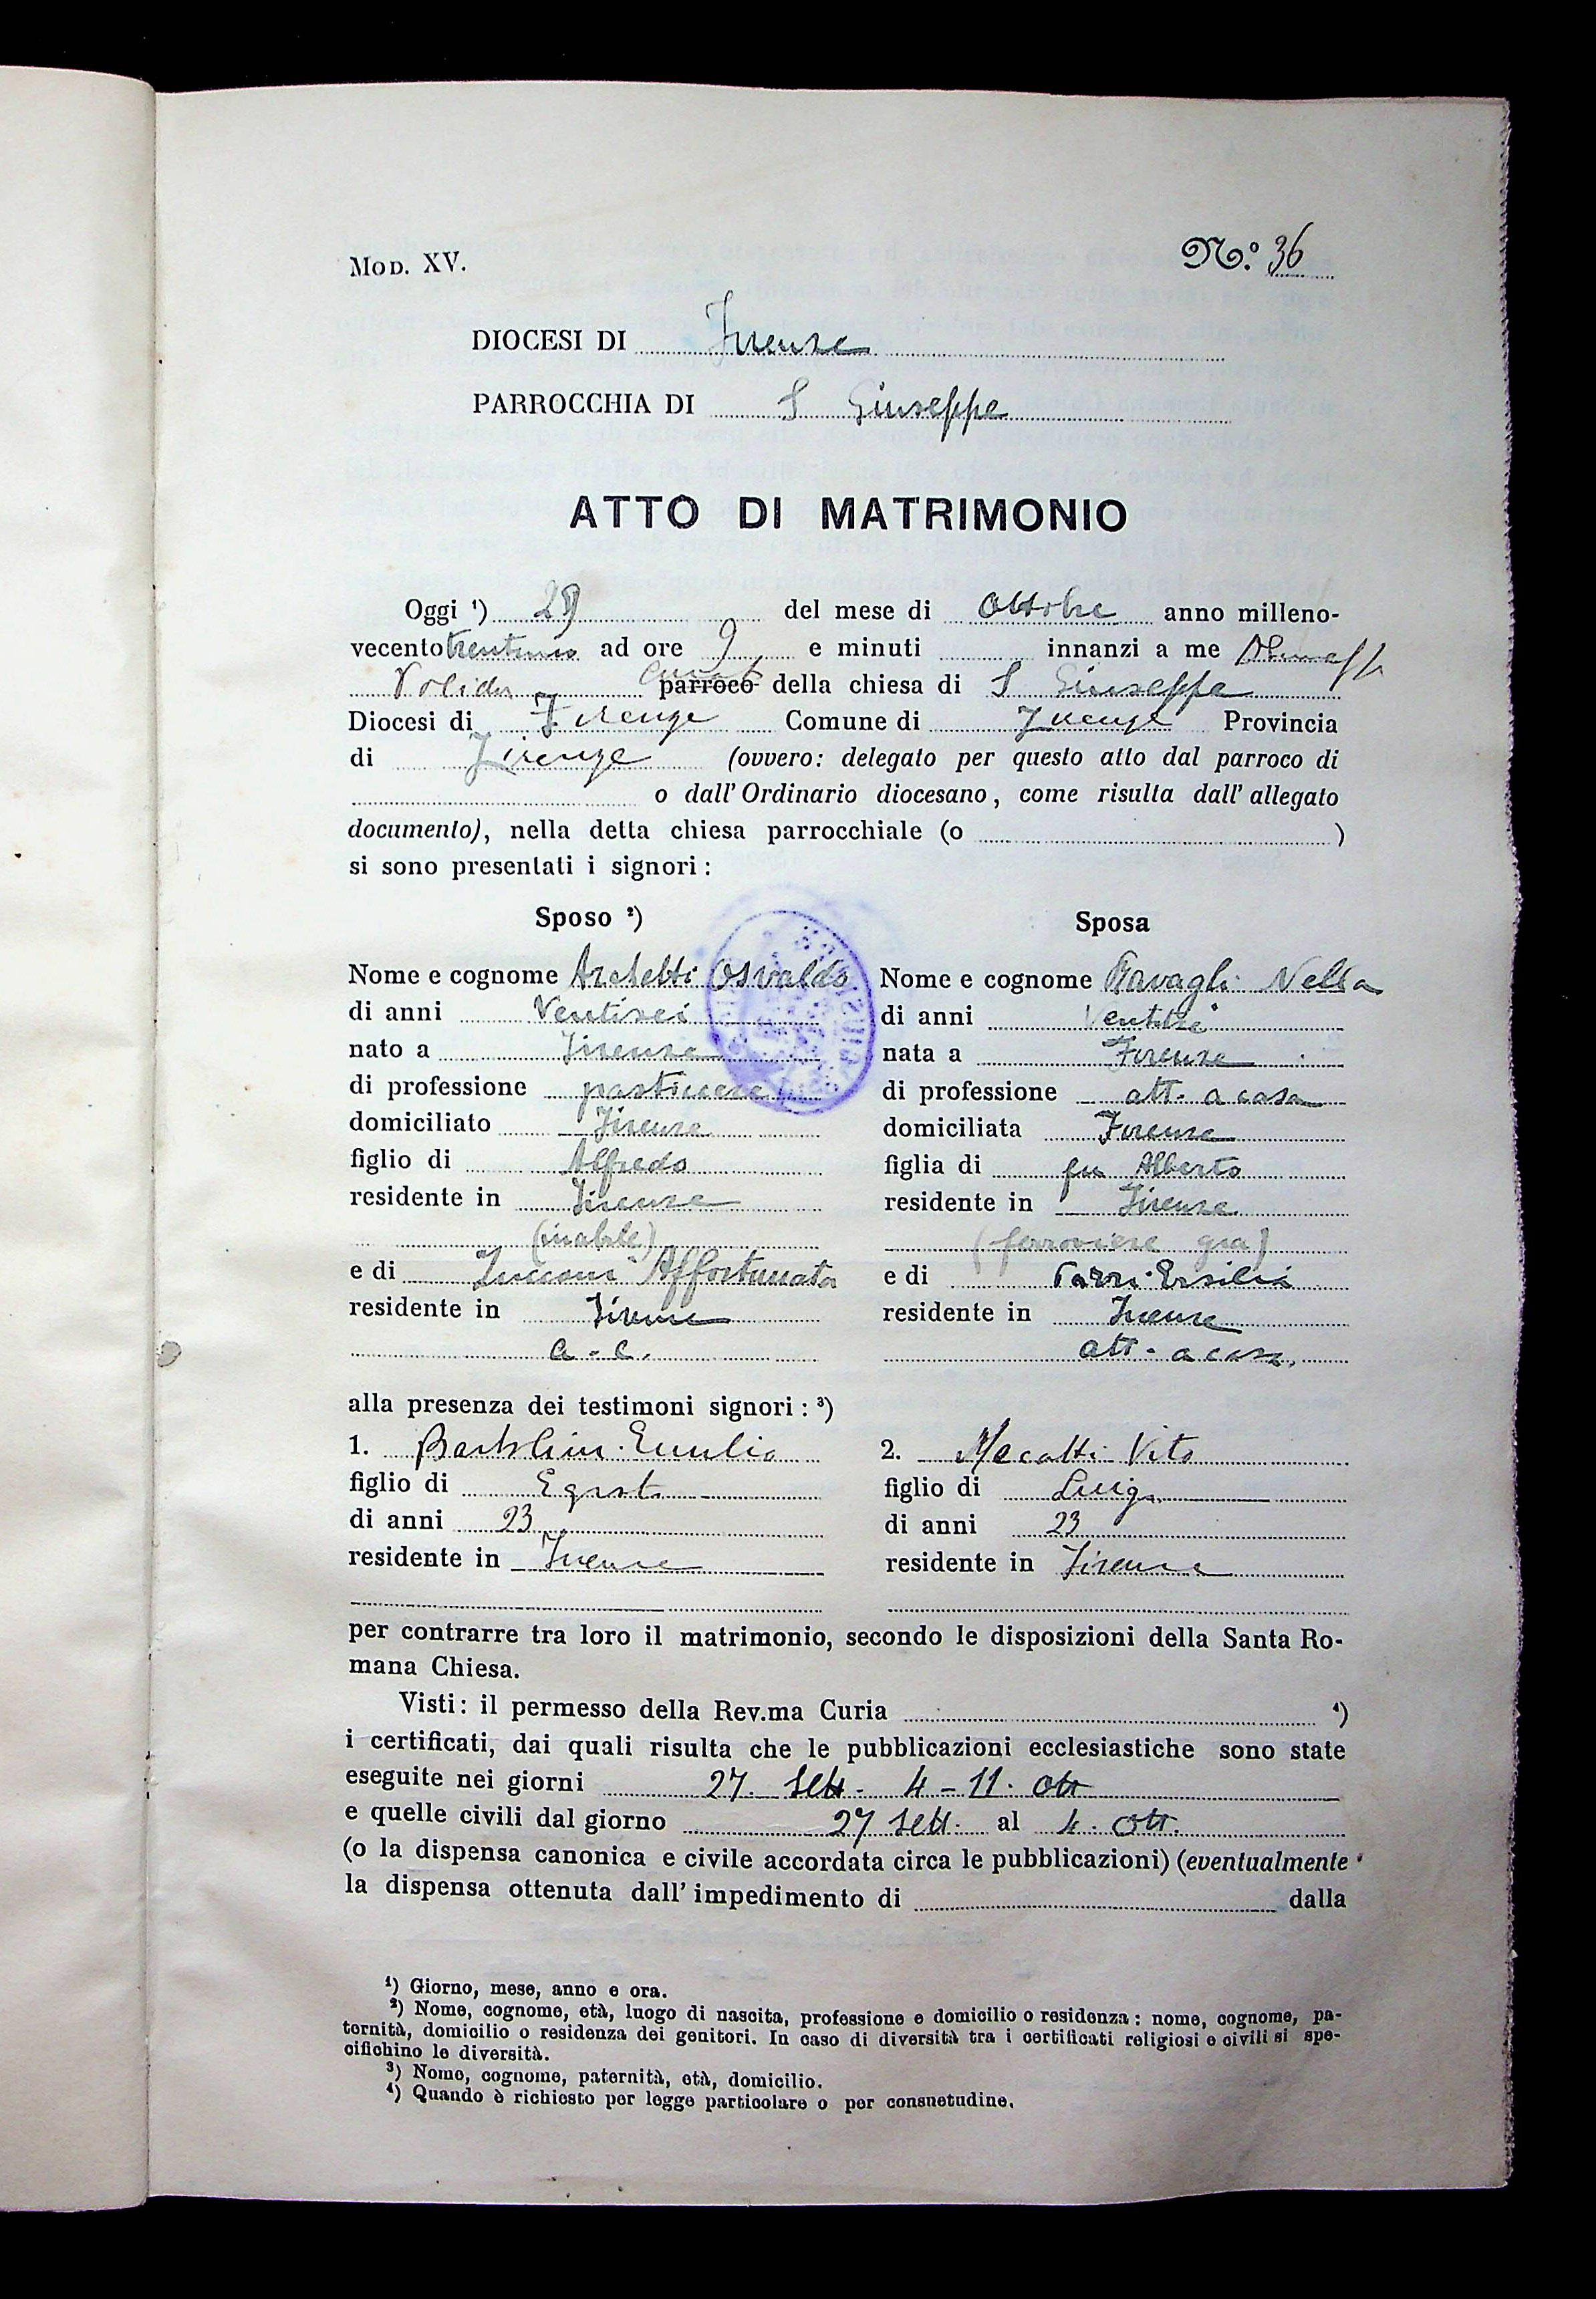 Mod. XV.
N.º 36
DIOCESI DI Firenze
PARROCCHIA DI S Giuseppe
ATTO DI MATRIMONIO
Oggi ¹) del mese di Ottobre anno milleno-
vecento trentuno ad ore 9 e minuti innanzi a me
parroco della chiesa di S Giuseppe
Diocesi di Firenze Comune di Firenze Provincia
di Firenze (ovvero: delegato per questo atto dal parroco di
o dall' Ordinario diocesano, come risulta dall' allegato
documento), nella detta chiesa parrocchiale (o )
si sono presentati i signori:
Sposo ²)
Nome e cognome Archetti Osvaldo
di anni Ventisei
nato a Firenze
di professione pasticcere
domiciliato Firenze
figlio di Alfredo
residente in Firenze
(inabile)
e di Zucconi Affortunata
residente in Firenze
a. c.
Sposa
Nome e cognome Ravagli Nella
di anni Ventitre
nata a Firenze
di professione att. a casa
domiciliata Firenze
figlia di fu Alberto
residente in Firenze
(ferroviere gia)
e di Parri Ersilia
residente in Firenze
att. a casa
alla presenza dei testimoni signori: ³)
1. Bartolini Emilio
figlio di Egisto
di anni 23
residente in Firenze
2. Mecatti Vito
figlio di Luigi
di anni 23
residente in Firenze
per contrarre tra loro il matrimonio, secondo le disposizioni della Santa Ro-
mana Chiesa.
Visti: il permesso della Rev.ma Curia ⁴)
i certificati, dai quali risulta che le pubblicazioni ecclesiastiche sono state
eseguite nei giorni 27. Sett. 4 - 11. Ott
e quelle civili dal giorno 27 Sett. al 4. Ott.
(o la dispensa canonica e civile accordata circa le pubblicazioni) (eventualmente
la dispensa ottenuta dall' impedimento di dalla
¹) Giorno, mese, anno e ora.
²) Nome, cognome, età, luogo di nascita, professione e domicilio o residenza: nome, cognome, pa-
ternità, domicilio o residenza dei genitori. In caso di diversità tra i certificati religiosi e civili si spe-
cifichino le diversità.
³) Nome, cognome, paternità, età, domicilio.
⁴) Quando è richiesto per legge particolare o per consuetudine.